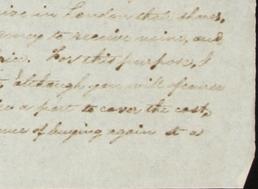 in London that shares,
to receive mine, and
For this purpose, I
although you will of course
a part to cover the cost,
of buying again at a